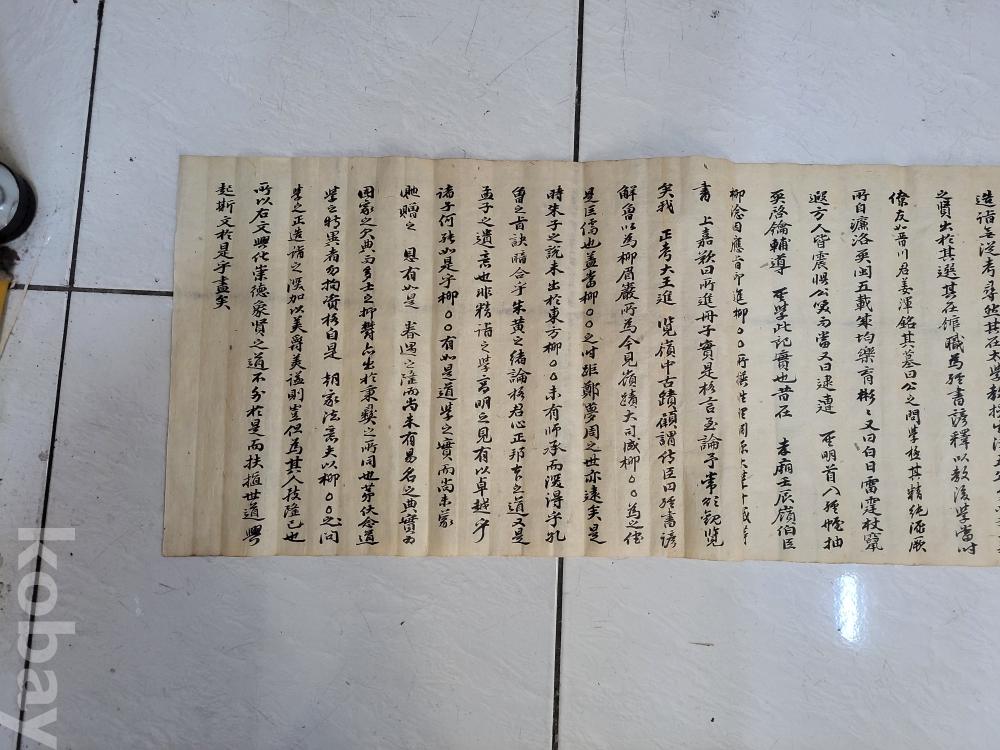 造詣無從考尋然其在太學教授生
之賢出於其選其在館職為經書諺釋以教後學當時
僚友如晋川君姜渾銘其墓曰公之問學極其精純源厥
所自濂洛與閩五載寒均樂育彬々又曰白日雷霆杖竄
遐方人皆震惧公笑而當又曰逮遭 聖明首入經幄抽
奚啓鑰輔導 聖學此記實也昔在 孝廟壬辰嶺伯臣
柳淰因應旨印進柳○○所撰性理淵源大
書 上嘉歎曰所進冊子實是格言至論予常欲観覽
矣我 正考大王進 覽嶺中古蹟顧謂侍臣曰經書諺
解曾以為柳眉巖所為今見嶺蹟大司成柳○○為之信
是巨儒也盖當柳○○之時距鄭夢周之世亦遠矣是
時朱子之說未出於東方柳○○未有師承而深得乎孔
曾之旨訣暗合乎朱黃之緖論格君心正邦本之道又是
孟子之遺意也非精詣之學高明之見有以卓越乎
諸子何能如是乎柳○○有如是道學之實而尚未蒙
貤贈之 恩有如是 眷遇之隆而尚未有易名之典實為
國家之欠典而多士之抑欝亦出於秉彝之所同也苐伏念道
學之特異者勿拘資格自是 朝家法意夫以柳○○之問
學之正造詣之深加以美爵美諡則豈但為其人技隆已也
所以右文興化崇德象賢之道不外於是而扶植世道興
起斯文於是乎盡矣
kobay